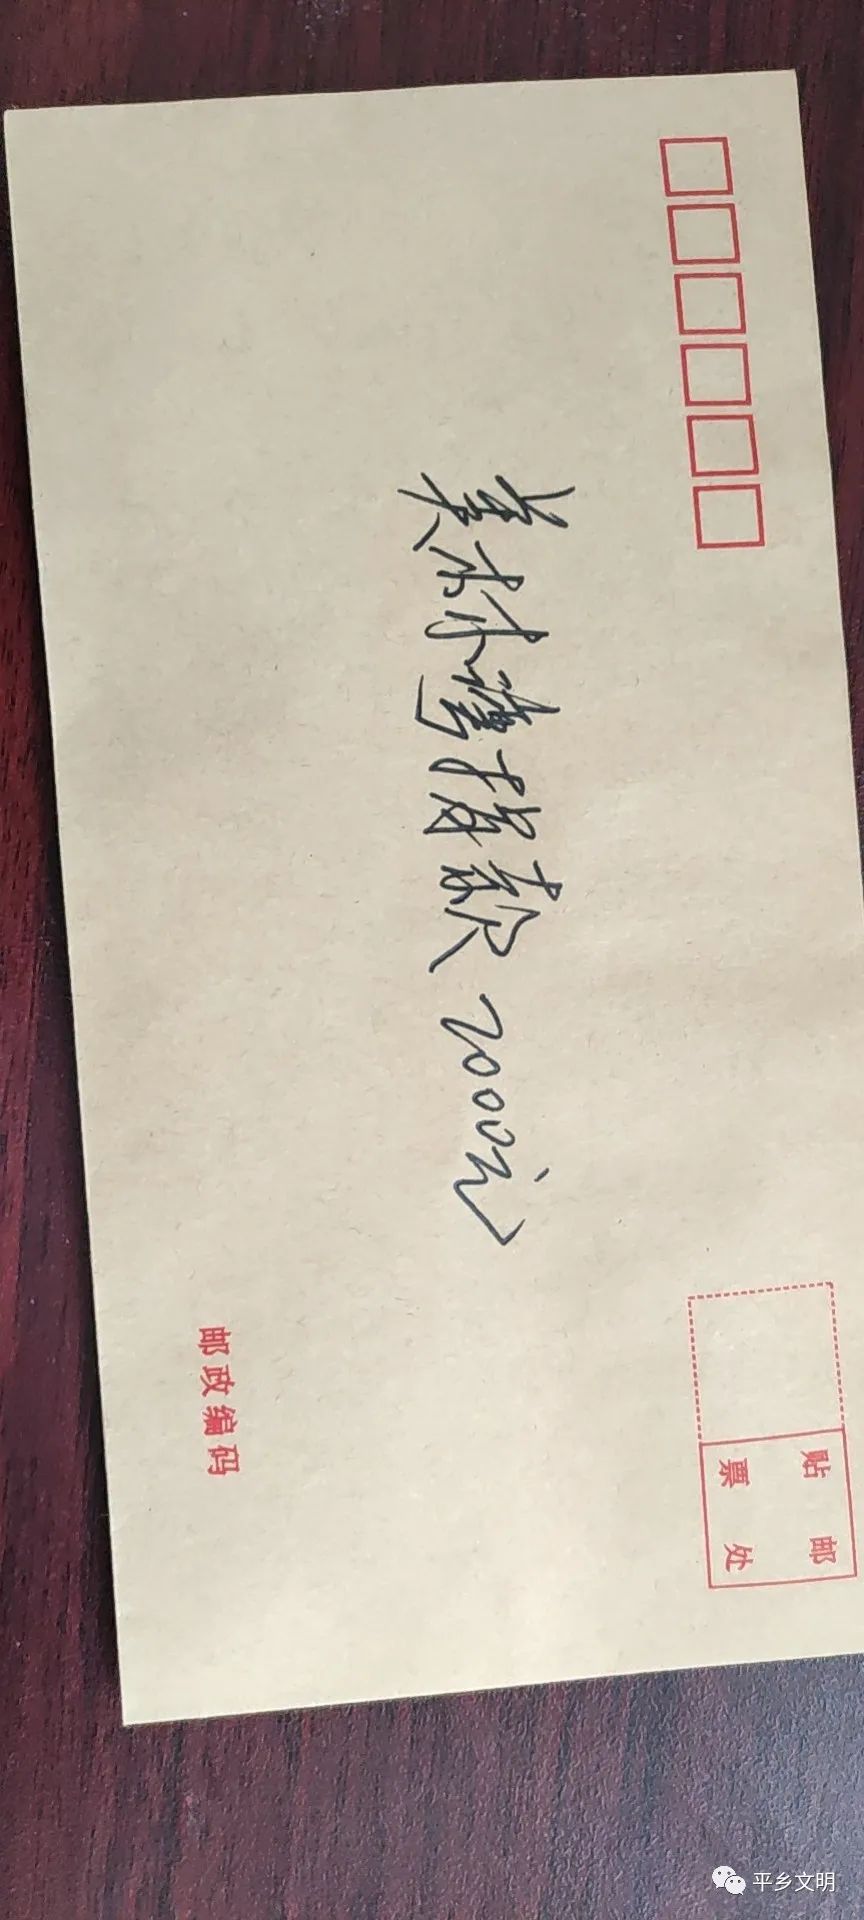 美林湾捐款2000元
贴邮
票处
邮政编码
平乡文明